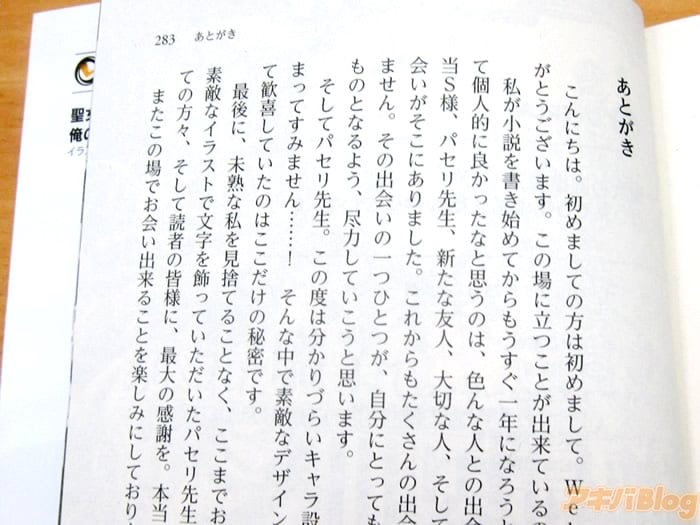 283 あとがき
あとがき
こんにちは。初めましての方は初めまして。We
がとうございます。この場に立つことが出来ている
私が小説を書き始めてからもうすぐ一年になろうと
て個人的に良かったなと思うのは、色んな人との出会
当S様、パセリ先生、新たな友人、大切な人、そして
会いがそこにありました。これからもたくさんの出会
ません。その出会いの一つひとつが、自分にとっても
ものとなるよう、尽力していこうと思います。
そしてパセリ先生。この度は分かりづらいキャラ設
まってすみません……！　そんな中で素敵なデザイン
て歓喜していたのはここだけの秘密です。
最後に、未熟な私を見捨てることなく、ここまでお
素敵なイラストで文字を飾っていただいたパセリ先生
ての方々、そして読者の皆様に、最大の感謝を。本当
またこの場でお会い出来ることを楽しみにしており
聖
俺の
イラ
アキバBlog